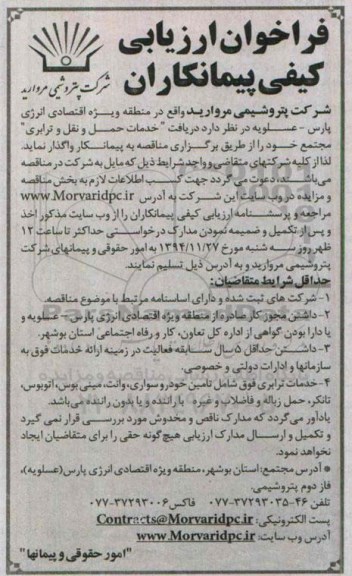 فراخوان ارزیابی
کیفی پیمانکاران
شرکت پتروشیمی مروارید
شرکت پتروشیمی مروارید واقع در منطقه ویژه اقتصادی انرژی
پارس - عسلویه در نظر دارد دریافت "خدمات حمل و نقل و ترابری"
مجتمع خود را از طریق برگزاری مناقصه به پیمانکار واگذار نماید.
لذا از کلیه شرکتهای متقاضی و واجد شرایط ذیل که مایل به شرکت در مناقصه
می‌باشند، دعوت می‌گردد جهت کسب اطلاعات لازم به بخش مناقصه
و مزایده در وب سایت این شرکت به آدرس www.Morvaridpc.ir
مراجعه و پرسشنامه ارزیابی کیفی پیمانکاران را از وب سایت مذکور اخذ
و پس از تکمیل و ضمیمه نمودن مدارک درخواستی حداکثر تا ساعت ۱۲
ظهر روز سه شنبه مورخ ۱۳۹۴/۱۱/۲۷ به امور حقوقی و پیمانهای شرکت
پتروشیمی مروارید و به آدرس ذیل تسلیم نمایند.
حداقل شرایط متقاضیان:
۱- شرکت های ثبت شده و دارای اساسنامه مرتبط با موضوع مناقصه.
۲- داشتن مجوز کار صادره از منطقه ویژه اقتصادی انرژی پارس - عسلویه و
یا دارا بودن گواهی از اداره کل تعاون، کار و رفاه اجتماعی استان بوشهر.
۳- داشتن حداقل ۵ سال سابقه فعالیت در زمینه ارائه خدمات فوق به
سازمانها و ادارات دولتی و خصوصی.
۴- خدمات ترابری فوق شامل تامین خودرو سواری، وانت، مینی بوس، اتوبوس،
تانکر، حمل زباله و فاضلاب و غیره با راننده و یا بدون راننده می‌باشد.
یادآور می‌گردد که مدارک ناقص و مخدوش مورد بررسی قرار نمی گیرد
و تکمیل و ارسال مدارک ارزیابی هیچ‌گونه حقی را برای متقاضیان ایجاد
نخواهد نمود.
* آدرس مجتمع: استان بوشهر، منطقه ویژه اقتصادی انرژی پارس (عسلویه)،
فاز دوم پتروشیمی.
تلفن ۴۶-۰۷۷-۳۷۲۹۳۰۳۵ فاکس ۰۷۷-۳۷۲۹۳۰۰۶
پست الکترونیکی: Contracts@Morvaridpc.ir
آدرس وب سایت: www.Morvaridpc.ir
"امور حقوقی و پیمانها"